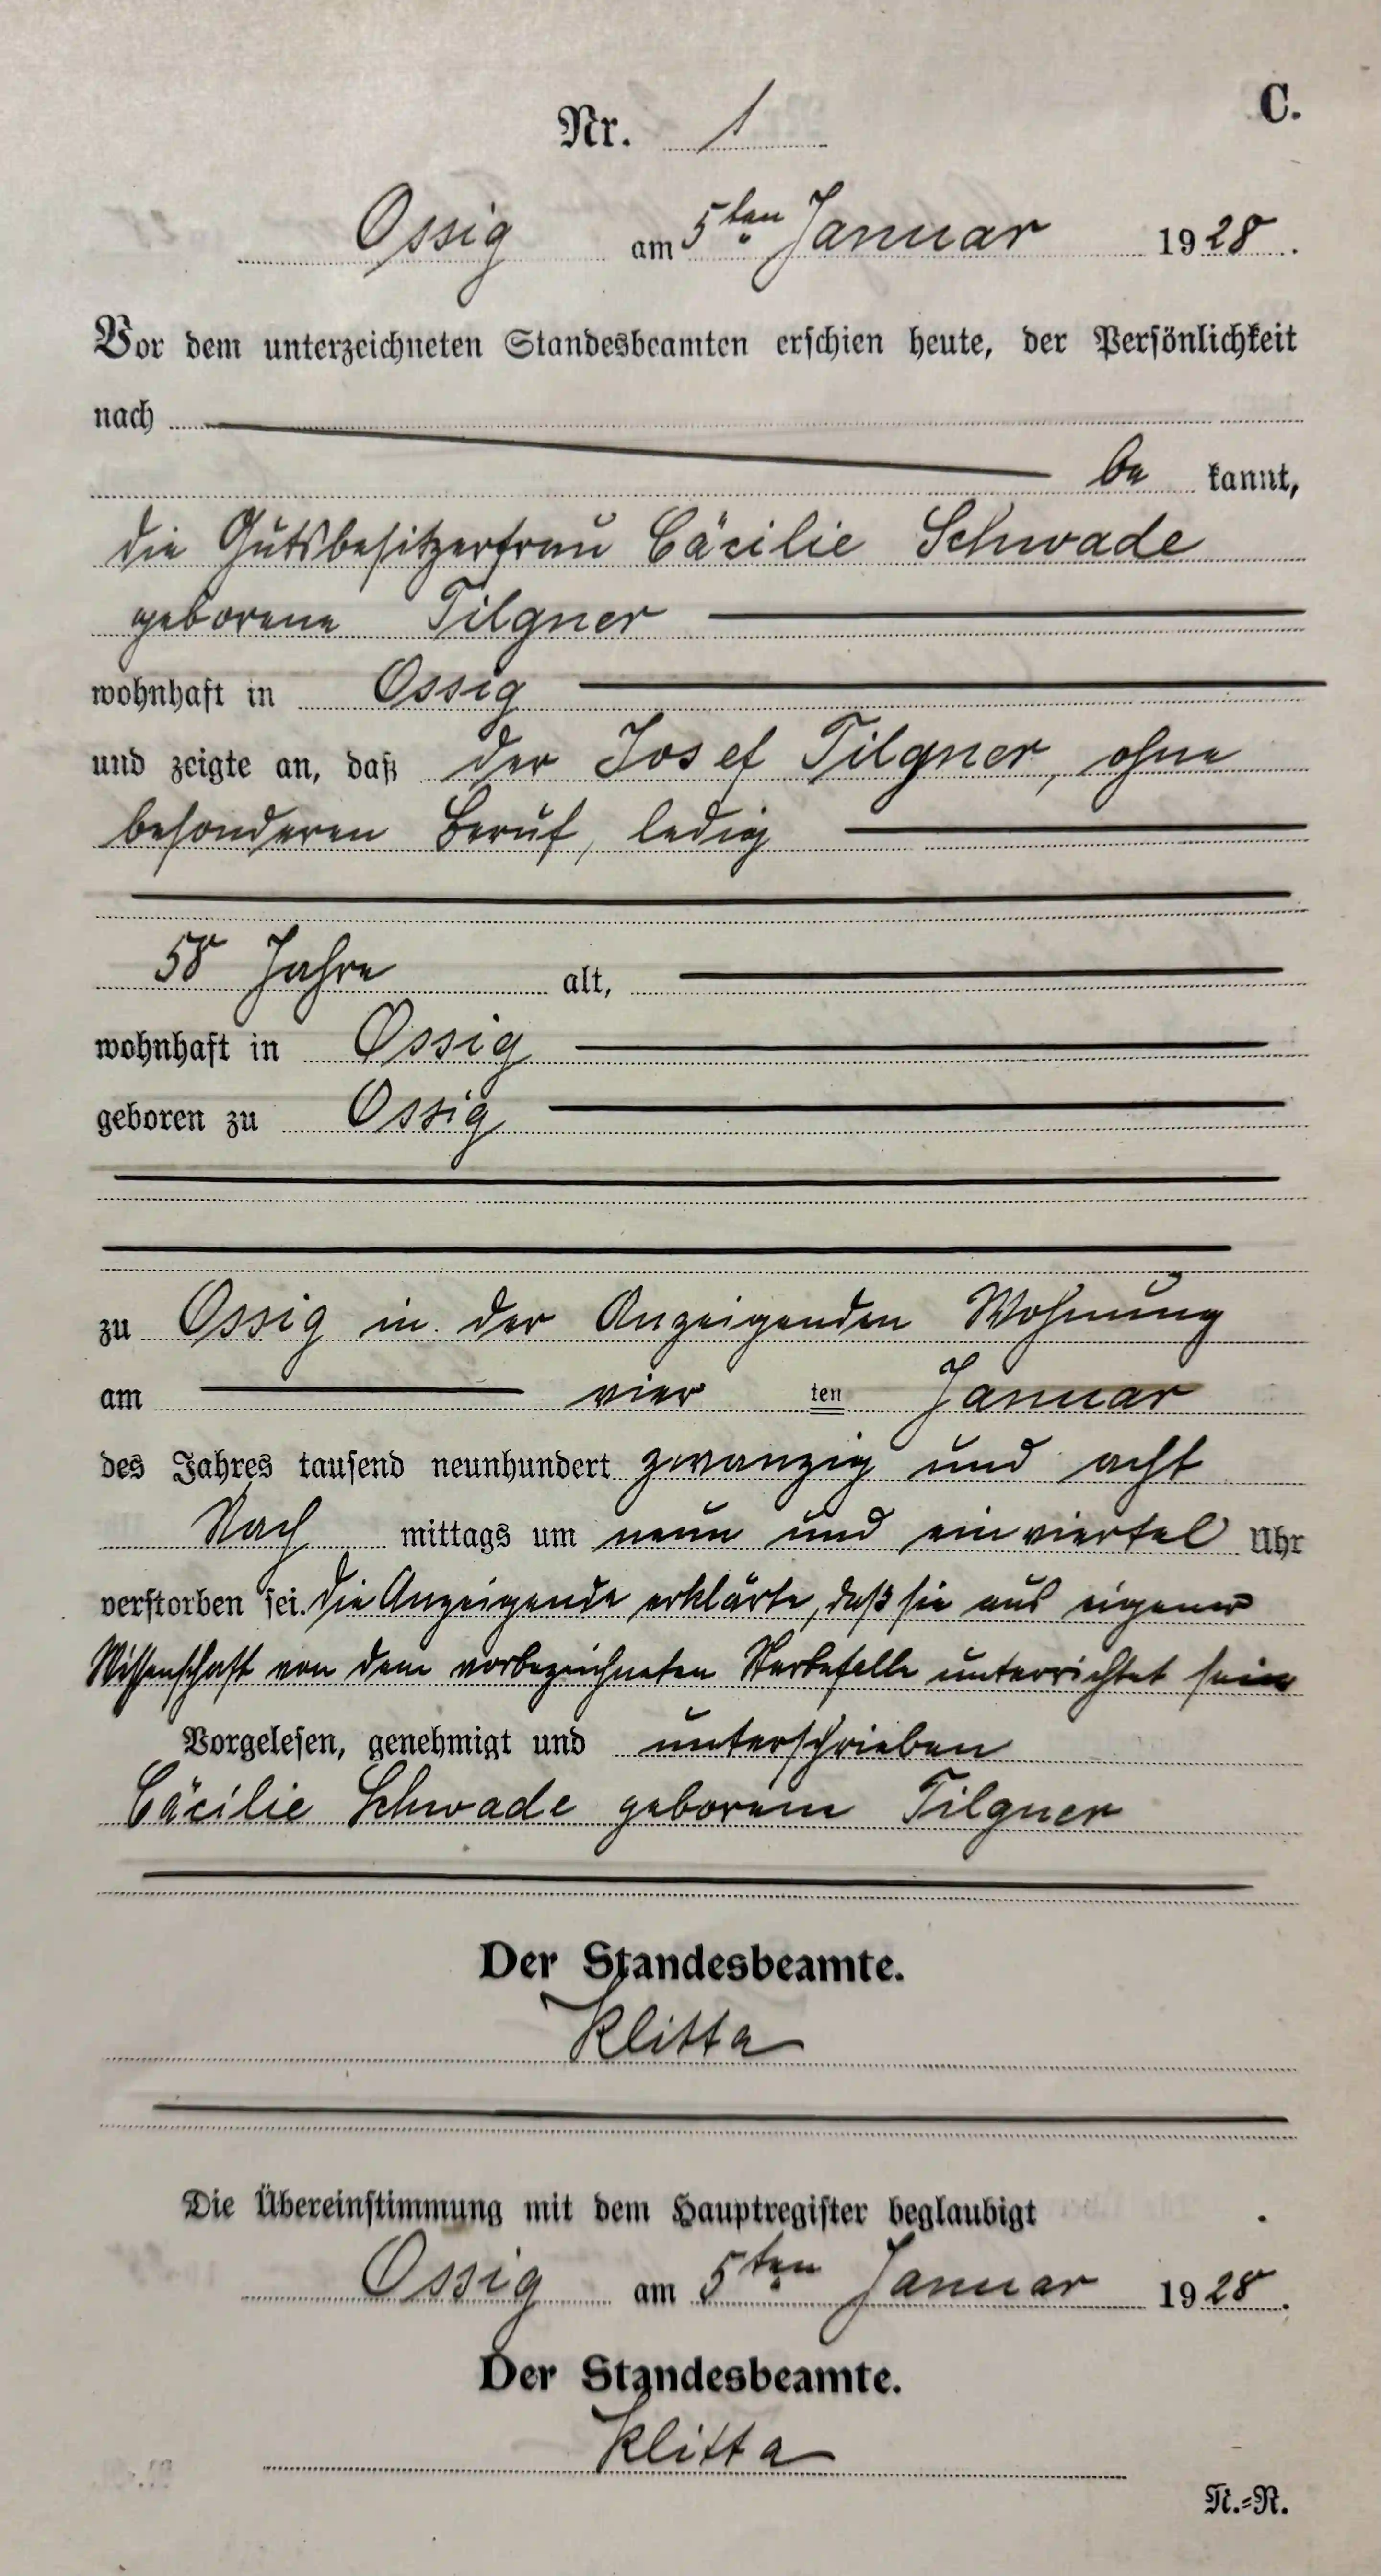 C.
Nr. 1
Ossig am 5ten Januar 1928.
Vor dem unterzeichneten Standesbeamten erschien heute, der Persönlichkeit
nach
be kannt,
die Gutsbesitzerfrau Cäcilie Schwade
geborene Tilgner
wohnhaft in Ossig
und zeigte an, daß der Josef Tilgner, ohne
besonderen Beruf, ledig
58 Jahre alt,
wohnhaft in Ossig
geboren zu Ossig
zu Ossig in der Anzeigenden Wohnung
am vier ten Januar
des Jahres tausend neunhundert zwanzig und acht
Nach mittags um neun und ein viertel Uhr
verstorben sei. Die Anzeigende erklärte, daß sie aus eigener
Wissenschaft von dem vorbezeichneten Sterbefalle unterrichtet sein
Vorgelesen, genehmigt und unterschrieben
Cäcilie Schwade geborene Tilgner
Der Standesbeamte.
Klitta
Die Übereinstimmung mit dem Hauptregister beglaubigt
Ossig am 5ten Januar 1928.
Der Standesbeamte.
Klitta
N.=R.